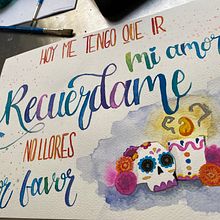 HOY ME TENGO QUE IR
mi amor
Recuérdame
NO LLORES
por favor